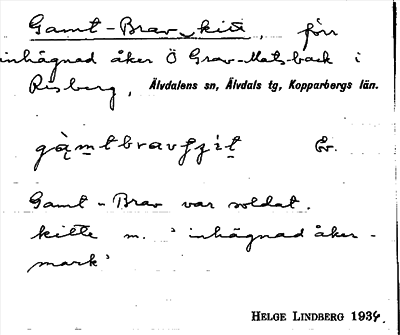 Gamt-Brav-kitt, förr
inhägnad åker Ö Grav-Matsback i
Risberg, Älvdalens sn, Älvdals tg, Kopparbergs län.
Gamt-Brav var soldat.
kitte m. 'inhägnad åker-
mark'
HELGE LINDBERG 1934.